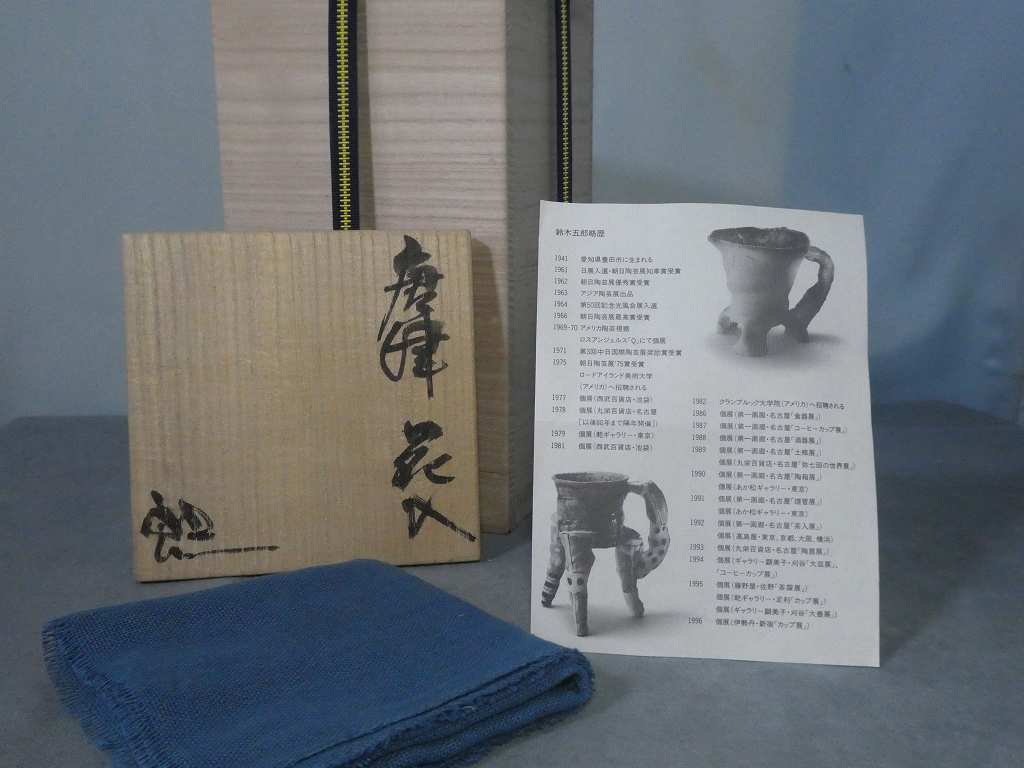 唐津
花入
鈴木五郎略歴
1941 愛知県豊田市に生まれる
1961 日展入選・朝日陶芸展知事賞受賞
1962 朝日陶芸展優秀賞受賞
1963 アジア陶芸展出品
1964 第50回記念光風会展入選
1966 朝日陶芸展最高賞受賞
1969-70 アメリカ陶芸視察
ロスアンジェルス「Q」にて個展
1971 第3回中日国際陶芸展奨励賞受賞
1975 朝日陶芸展'75賞受賞
ロードアイランド美術大学
(アメリカ)へ招聘される
1977 個展(西武百貨店・池袋)
1978 個展(丸栄百貨店・名古屋
[以後80年まで隔年開催])
1979 個展(乾ギャラリー・東京)
1981 個展(西武百貨店・池袋)
1982 クランブルック大学院(アメリカ)へ招聘される
1986 個展(第一画廊・名古屋「食器展」)
1987 個展(第一画廊・名古屋「コーヒーカップ展」)
1988 個展(第一画廊・名古屋「酒器展」)
1989 個展(第一画廊・名古屋「土瓶展」)
個展(丸栄百貨店・名古屋「弥七田の世界展」)
1990 個展(第一画廊・名古屋「陶箱展」)
個展(あか松ギャラリー・東京)
1991 個展(第一画廊・名古屋「燈器展」)
個展(あか松ギャラリー・東京)
1992 個展(第一画廊・名古屋「茶入展」)
個展(高島屋・東京、京都、大阪、横浜)
1993 個展(丸栄百貨店・名古屋「陶器展」)
1994 個展(ギャラリー顕美子・刈谷「大皿展」、
「コーヒーカップ展」)
1995 個展(藤野屋・佐野「茶碗展」)
個展(乾ギャラリー・足利「カップ展」)
個展(ギャラリー顕美子・刈谷「大壺展」)
1996 個展(伊勢丹・新宿「カップ展」)